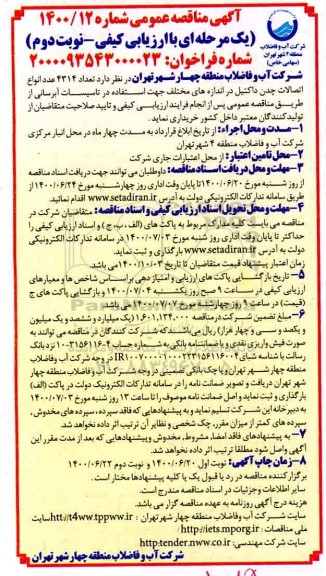 آگهی مناقصه عمومی شماره ۱۴۰۰/۱۲
(یک مرحله‌ای با ارزیابی کیفی – نوبت دوم)
شماره فراخوان: ۲۰۰۰۰۹۳۵۴۳۰۰۰۰۲۳
شرکت آب و فاضلاب
منطقه ۴ شهر تهران
(سهامی خاص)
شرکت آب و فاضلاب منطقه چهار شهر تهران در نظر دارد تعداد ۴۳۱۴ عدد انواع
اتصالات چدن داکتیل در اندازه های مختلف جهت استفاده در تاسیسات آبرسانی از
طریق مناقصه عمومی پس از انجام فرایند ارزیابی کیفی و تایید صلاحیت متقاضیان از
تولیدکنندگان معتبر داخل کشور خریداری نماید.
۱- مدت و محل اجراء: از تاریخ ابلاغ قرارداد به مدت چهار ماه در محل انبار مرکزی
شرکت آب و فاضلاب منطقه ۴ شهر تهران
۲- محل تامین اعتبار: از محل اعتبارات جاری شرکت
۳- مهلت و محل دریافت اسناد مناقصه: داوطلبان می توانند جهت دریافت اسناد مناقصه
از روز شنبه مورخ ۱۴۰۰/۰۶/۲۰ تا پایان وقت اداری روز چهارشنبه مورخ ۱۴۰۰/۰۶/۲۴ از
طریق سامانه تدارکات الکترونیکی دولت به آدرس www.setadiran.ir اقدام نمائید.
۴- مهلت و محل تحویل اسناد ارزیابی کیفی و اسناد مناقصه: متقاضیان شرکت در
مناقصه می بایست مدارک مربوط به پاکت های (الف، ب، ج) و اسناد ارزیابی کیفی را
حداکثر تا پایان وقت اداری روز شنبه مورخ ۱۴۰۰/۰۷/۰۳ در سامانه تدارکات الکترونیکی
دولت به آدرس www.setadiran.ir بارگذاری و ثبت نماید.
زمان اعتبار پیشنهاد قیمت متقاضیان تا تاریخ ۱۴۰۰/۱۰/۰۳ می باشد.
۵- تاریخ بازگشایی پاکت های ارزیابی و امتیازدهی بر اساس شاخص ها و معیارهای
ارزیابی کیفی در ساعت ۹ صبح روز یکشنبه ۱۴۰۰/۰۷/۰۴ و بازگشایی پاکت های ج
(قیمت) در ساعت ۹ روز چهارشنبه مورخ ۱۴۰۰/۰۷/۰۷ می باشد.
۶- مبلغ تضمین شرکت در مناقصه ۱.۶۰۱.۱۳۴.۰۰۰ (یک میلیارد و ششصد و یک میلیون
و یکصد و سی و چهار هزار) ریال می باشد که شرکت کنندگان در مناقصه می توانند به
صورت فیش واریز نقدی و یا ضمانتنامه بانکی به شماره حساب ۱۰۰۳۱۵۶۱۱۶۰۴ نزد بانک
در وجه شرکت آب و فاضلاب
منطقه چهار شهر تهران و یا چک بانکی تضمینی در وجه شرکت آب و فاضلاب منطقه چهار
شهر تهران دریافت و تصویر ضمانت نامه را در سامانه تدارکات الکترونیک دولت در پاکت (الف)
بارگذاری و ثبت نماید و اصل ضمانت نامه موصوف را تا ساعت ۱۳ روز شنبه مورخ ۱۴۰۰/۰۷/۰۳
به دبیرخانه این شرکت تسلیم نماید و به پیشنهادهایی که فاقد سپرده، سپرده های مخدوش،
سپرده های کمتر از میزان مقرر، چک شخصی و نظایر آن ترتیب اثر داده نخواهد شد.
۷- به پیشنهادهای فاقد امضاء، مشروط، مخدوش و پیشنهادهایی که بعد از مدت مقرر این
آگهی واصل شود مطلقا ترتیب اثر داده نخواهد شد.
۸- زمان چاپ آگهی: نوبت اول ۱۴۰۰/۰۶/۲۰ و نوبت دوم ۱۴۰۰/۰۶/۲۲
برگزار کننده مناقصه در رد یا قبول یک یا کلیه پیشنهادها مختار است.
سایر اطلاعات و جزئیات در اسناد مناقصه مندرج است.
هزینه درج آگهی روزنامه به عهده مناقصه گزار می باشد.
سایت شرکت آب و فاضلاب منطقه چهار شهر تهران: htt://t4ww.tppww.ir سایت
ملی مناقصات: http://iets.mporg.ir
سایت شرکت مهندسی: http-tender.nww.co.ir
شرکت آب و فاضلاب منطقه چهار شهر تهران